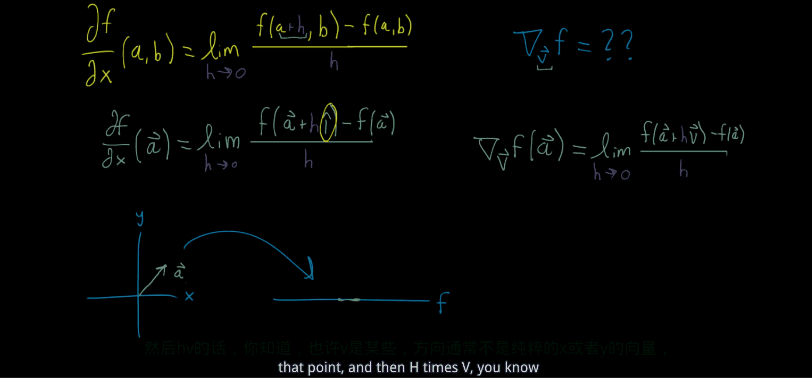 ∂f/∂x (a,b) = lim h→0 f(a+h, b) - f(a,b) / h
∇v⃗ f = ??
∂f/∂x (a⃗) = lim h→0 f(a⃗+hî) - f(a⃗) / h
∇v⃗ f(a⃗) = lim h→0 f(a⃗+hv⃗) - f(a⃗) / h
y
a⃗
x
f
然后hv的话，你知道，也许v是某些，方向通常不是纯粹的x或者y的向量，
that point, and then H times V, you know